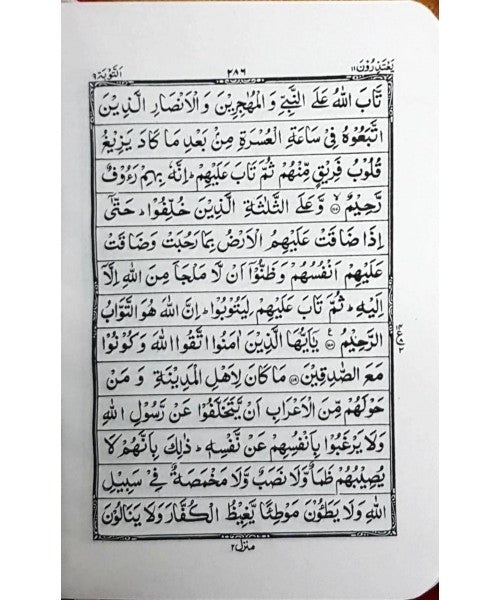 یَعْتَذِرُوْنَ ۱۱ ۲۸۶ اَلتَّوْبَة ۹
تَّابَ اللّٰهُ عَلَى النَّبِيِّ وَ الْمُهٰجِرِيْنَ وَ الْاَنْصَارِ الَّذِيْنَ
اتَّبَعُوْهُ فِيْ سَاعَةِ الْعُسْرَةِ مِنْۢ بَعْدِ مَا كَادَ يَزِيْغُ
قُلُوْبُ فَرِيْقٍ مِّنْهُمْ ثُمَّ تَابَ عَلَيْهِمْ ؕ اِنَّهٗ بِهِمْ رَءُوْفٌ
رَّحِيْمٌ ۙ﴿۱۱۷﴾ وَّ عَلَى الثَّلٰثَةِ الَّذِيْنَ خُلِّفُوْا ؕ حَتّٰۤى
اِذَا ضَاقَتْ عَلَيْهِمُ الْاَرْضُ بِمَا رَحُبَتْ وَ ضَاقَتْ
عَلَيْهِمْ اَنْفُسُهُمْ وَ ظَنُّوْۤا اَنْ لَّا مَلْجَاَ مِنَ اللّٰهِ اِلَّاۤ
اِلَيْهِ ؕ ثُمَّ تَابَ عَلَيْهِمْ لِيَتُوْبُوْا ؕ اِنَّ اللّٰهَ هُوَ التَّوَّابُ
الرَّحِيْمُ ﴿۱۱۸﴾ يٰۤاَيُّهَا الَّذِيْنَ اٰمَنُوا اتَّقُوا اللّٰهَ وَ كُوْنُوْا
مَعَ الصّٰدِقِيْنَ ﴿۱۱۹﴾ مَا كَانَ لِاَهْلِ الْمَدِيْنَةِ وَ مَنْ
حَوْلَهُمْ مِّنَ الْاَعْرَابِ اَنْ يَّتَخَلَّفُوْا عَنْ رَّسُوْلِ اللّٰهِ
وَ لَا يَرْغَبُوْا بِاَنْفُسِهِمْ عَنْ نَّفْسِهٖ ؕ ذٰلِكَ بِاَنَّهُمْ لَا
يُصِيْبُهُمْ ظَمَاٌ وَّ لَا نَصَبٌ وَّ لَا مَخْمَصَةٌ فِيْ سَبِيْلِ
اللّٰهِ وَ لَا يَطَـُٔوْنَ مَوْطِئًا يَّغِيْظُ الْكُفَّارَ وَ لَا يَنَالُوْنَ
منزل ۲